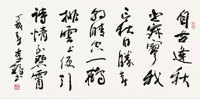 自古逢秋
悲寂寥我
言秋日勝春
朝晴空一鶴
排雲上便引
詩情到碧霄